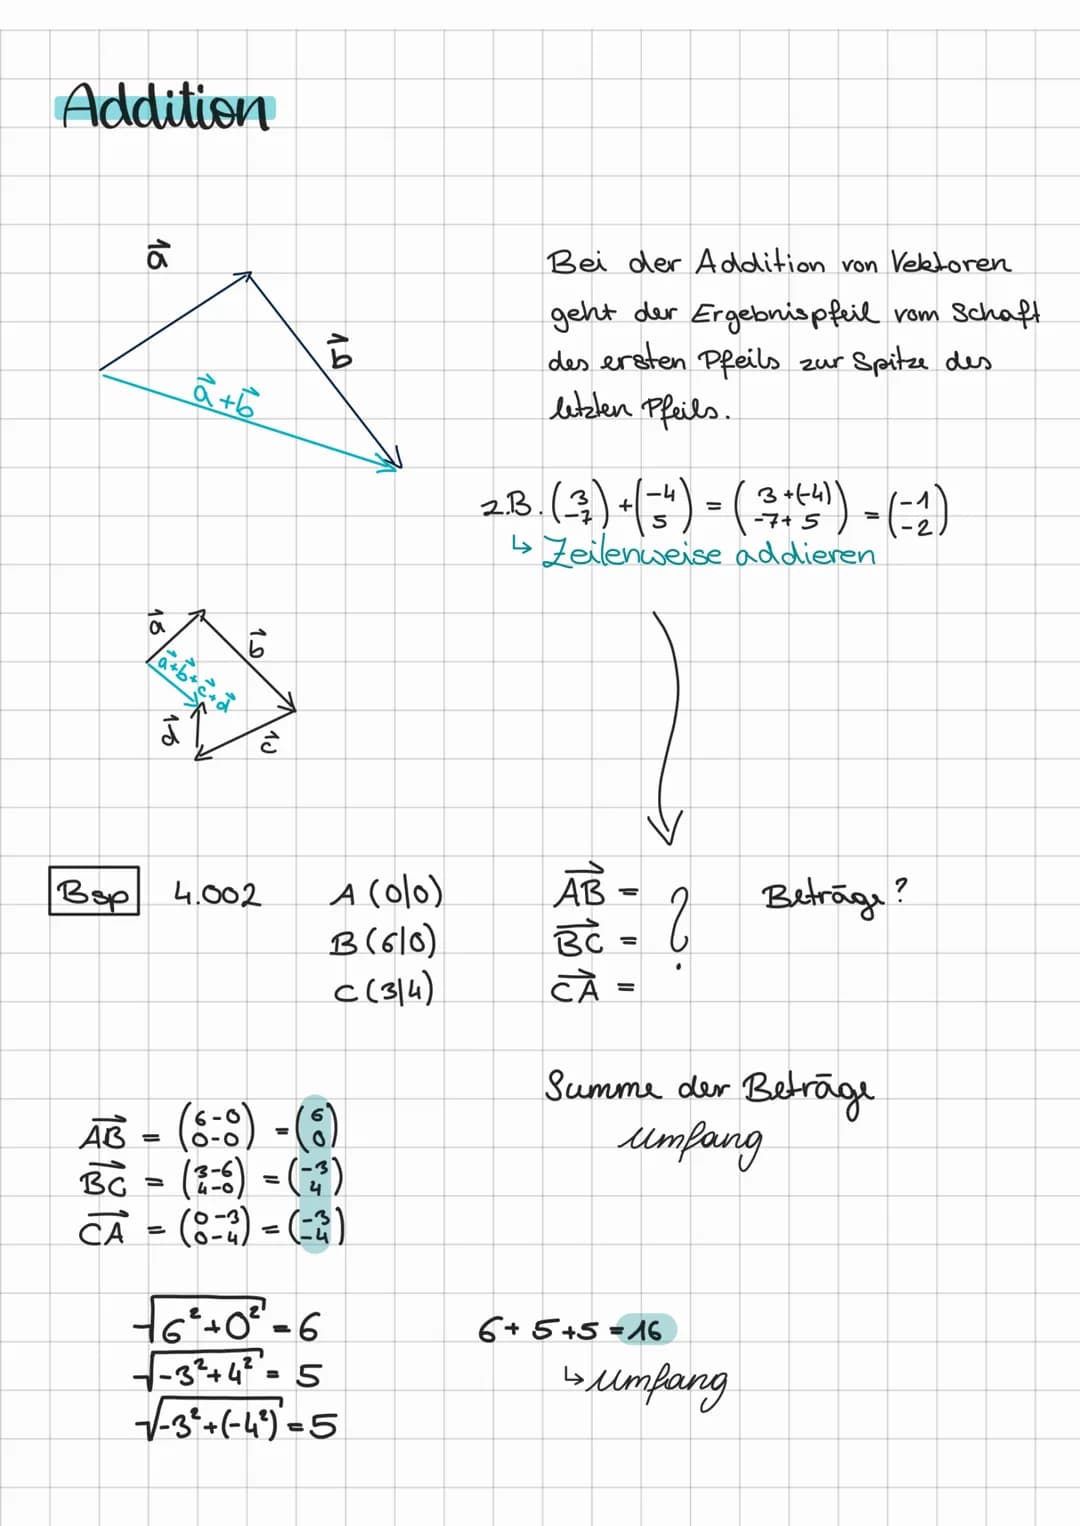 Addition
a⃗
b⃗
a⃗ + b⃗
Bei der Addition von Vektoren
geht der Ergebnispfeil vom Schaft
des ersten Pfeils zur Spitze des
letzten Pfeils.
z.B. (3 / -7) + (-4 / 5) = (3+(-4) / -7+5) = (-1 / -2)
↳ Zeilenweise addieren
a⃗
b⃗
a⃗+b⃗+c⃗+d⃗
d⃗
c⃗
Bsp 4.002 A (0|0) AB⃗ = ? Beträge?
B (6|0) BC⃗ =
C (3|4) CA⃗ =
Summe der Beträge
Umfang
AB⃗ = (6-0 / 0-0) = (6 / 0)
BC⃗ = (3-6 / 4-0) = (-3 / 4)
CA⃗ = (0-3 / 0-4) = (-3 / -4)
√6²+0² = 6
√-3²+4² = 5
√-3²+(-4²) = 5
6+5+5=16
↳ Umfang